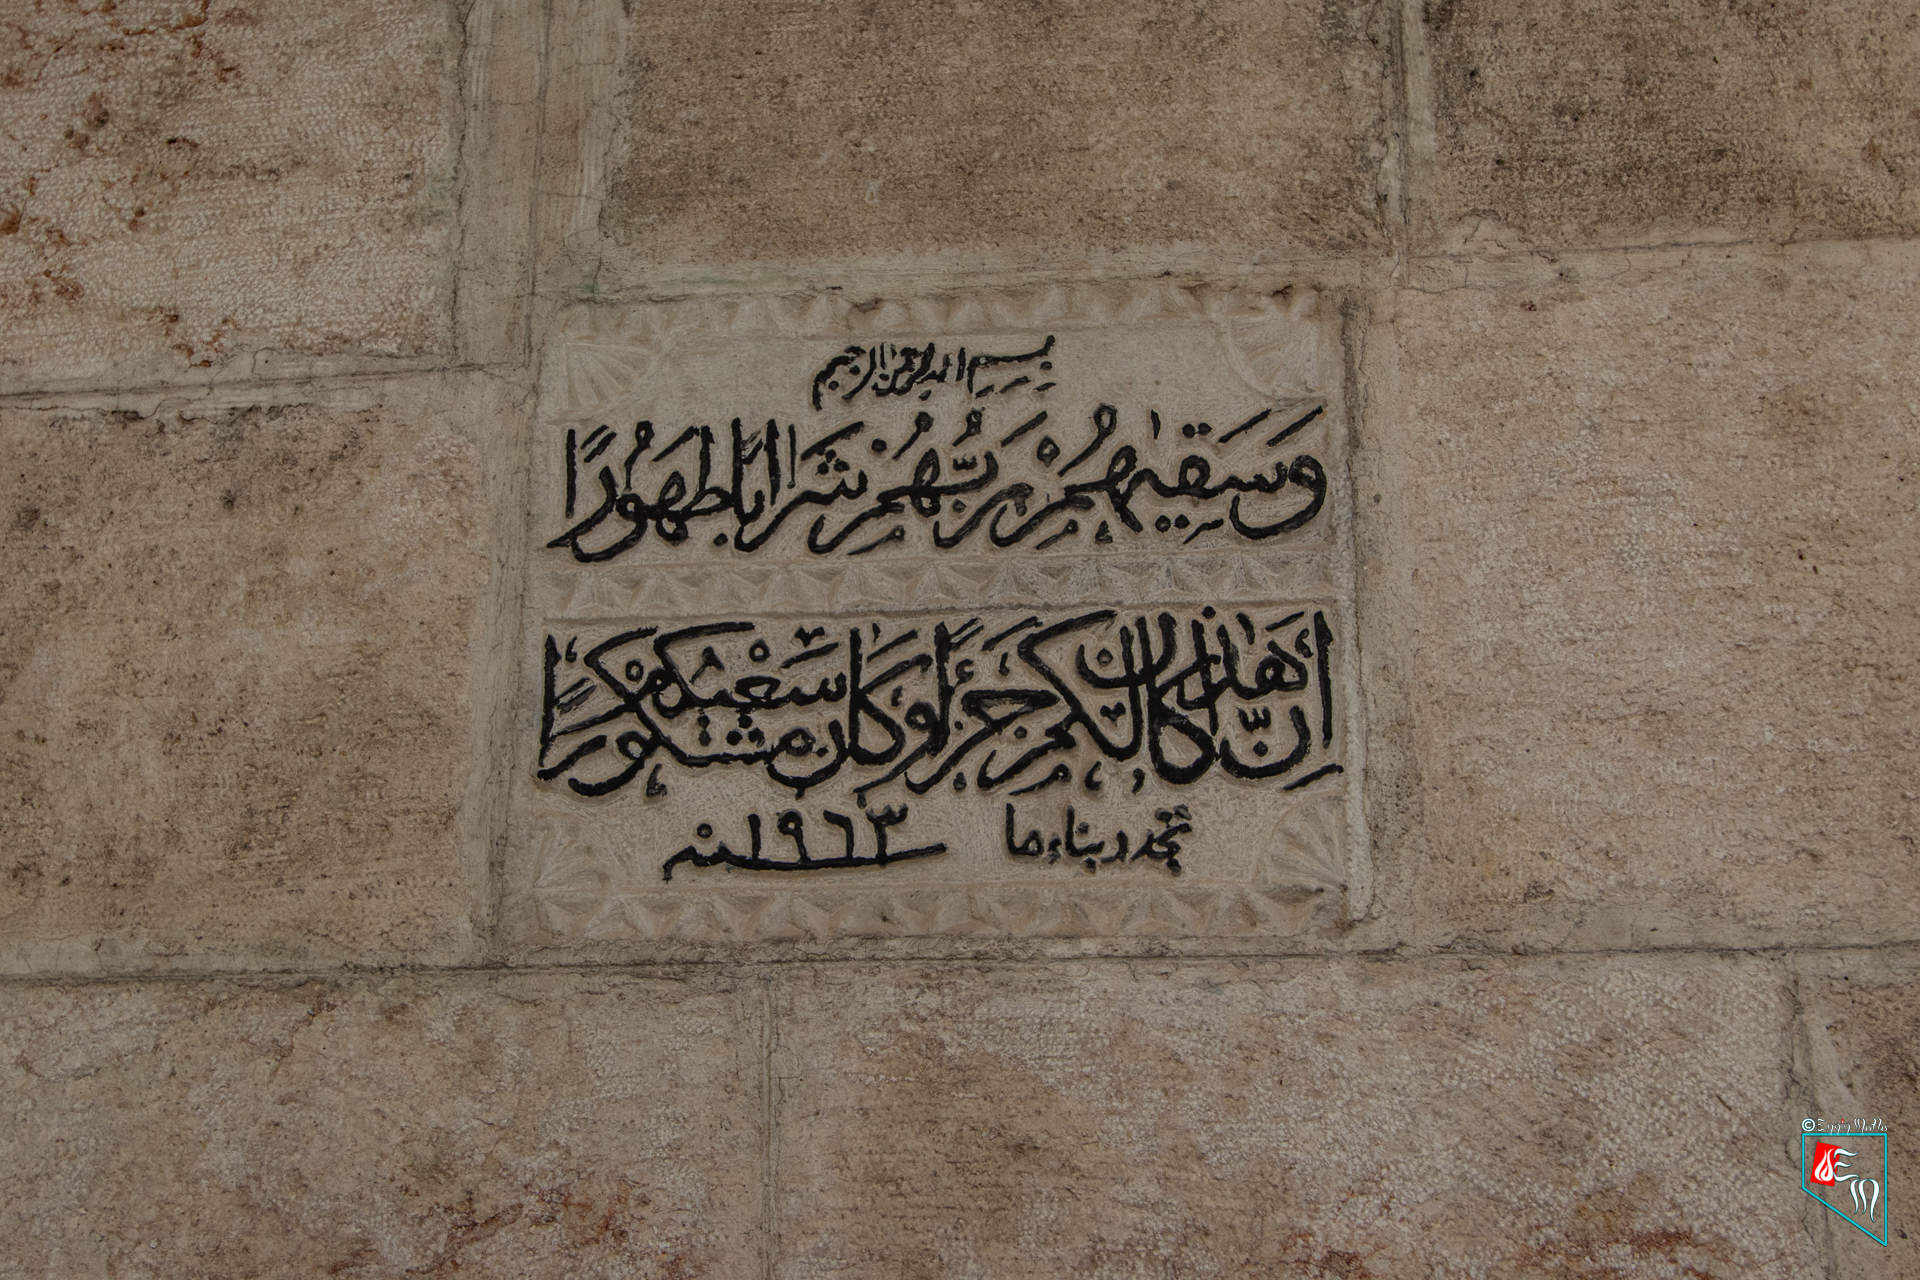 بسم الله الرحمن الرحيم
وَسَقِيٰهُمْ رَبُّهُمْ شَرَابًا طَهُورًا
إِنَّ هَٰذَا كَانَ لَكُمْ جَزَاءً وَكَانَ سَعْيُكُمْ مَشْكُورًا
تجدد بناءها سنة ١٩٦٣
© Eggiy Matta
EM